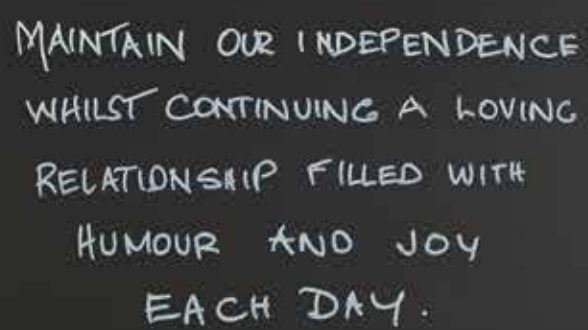 MAINTAIN OUR INDEPENDENCE
WHILST CONTINUING A LOVING
RELATIONSHIP FILLED WITH
HUMOUR AND JOY
EACH DAY.